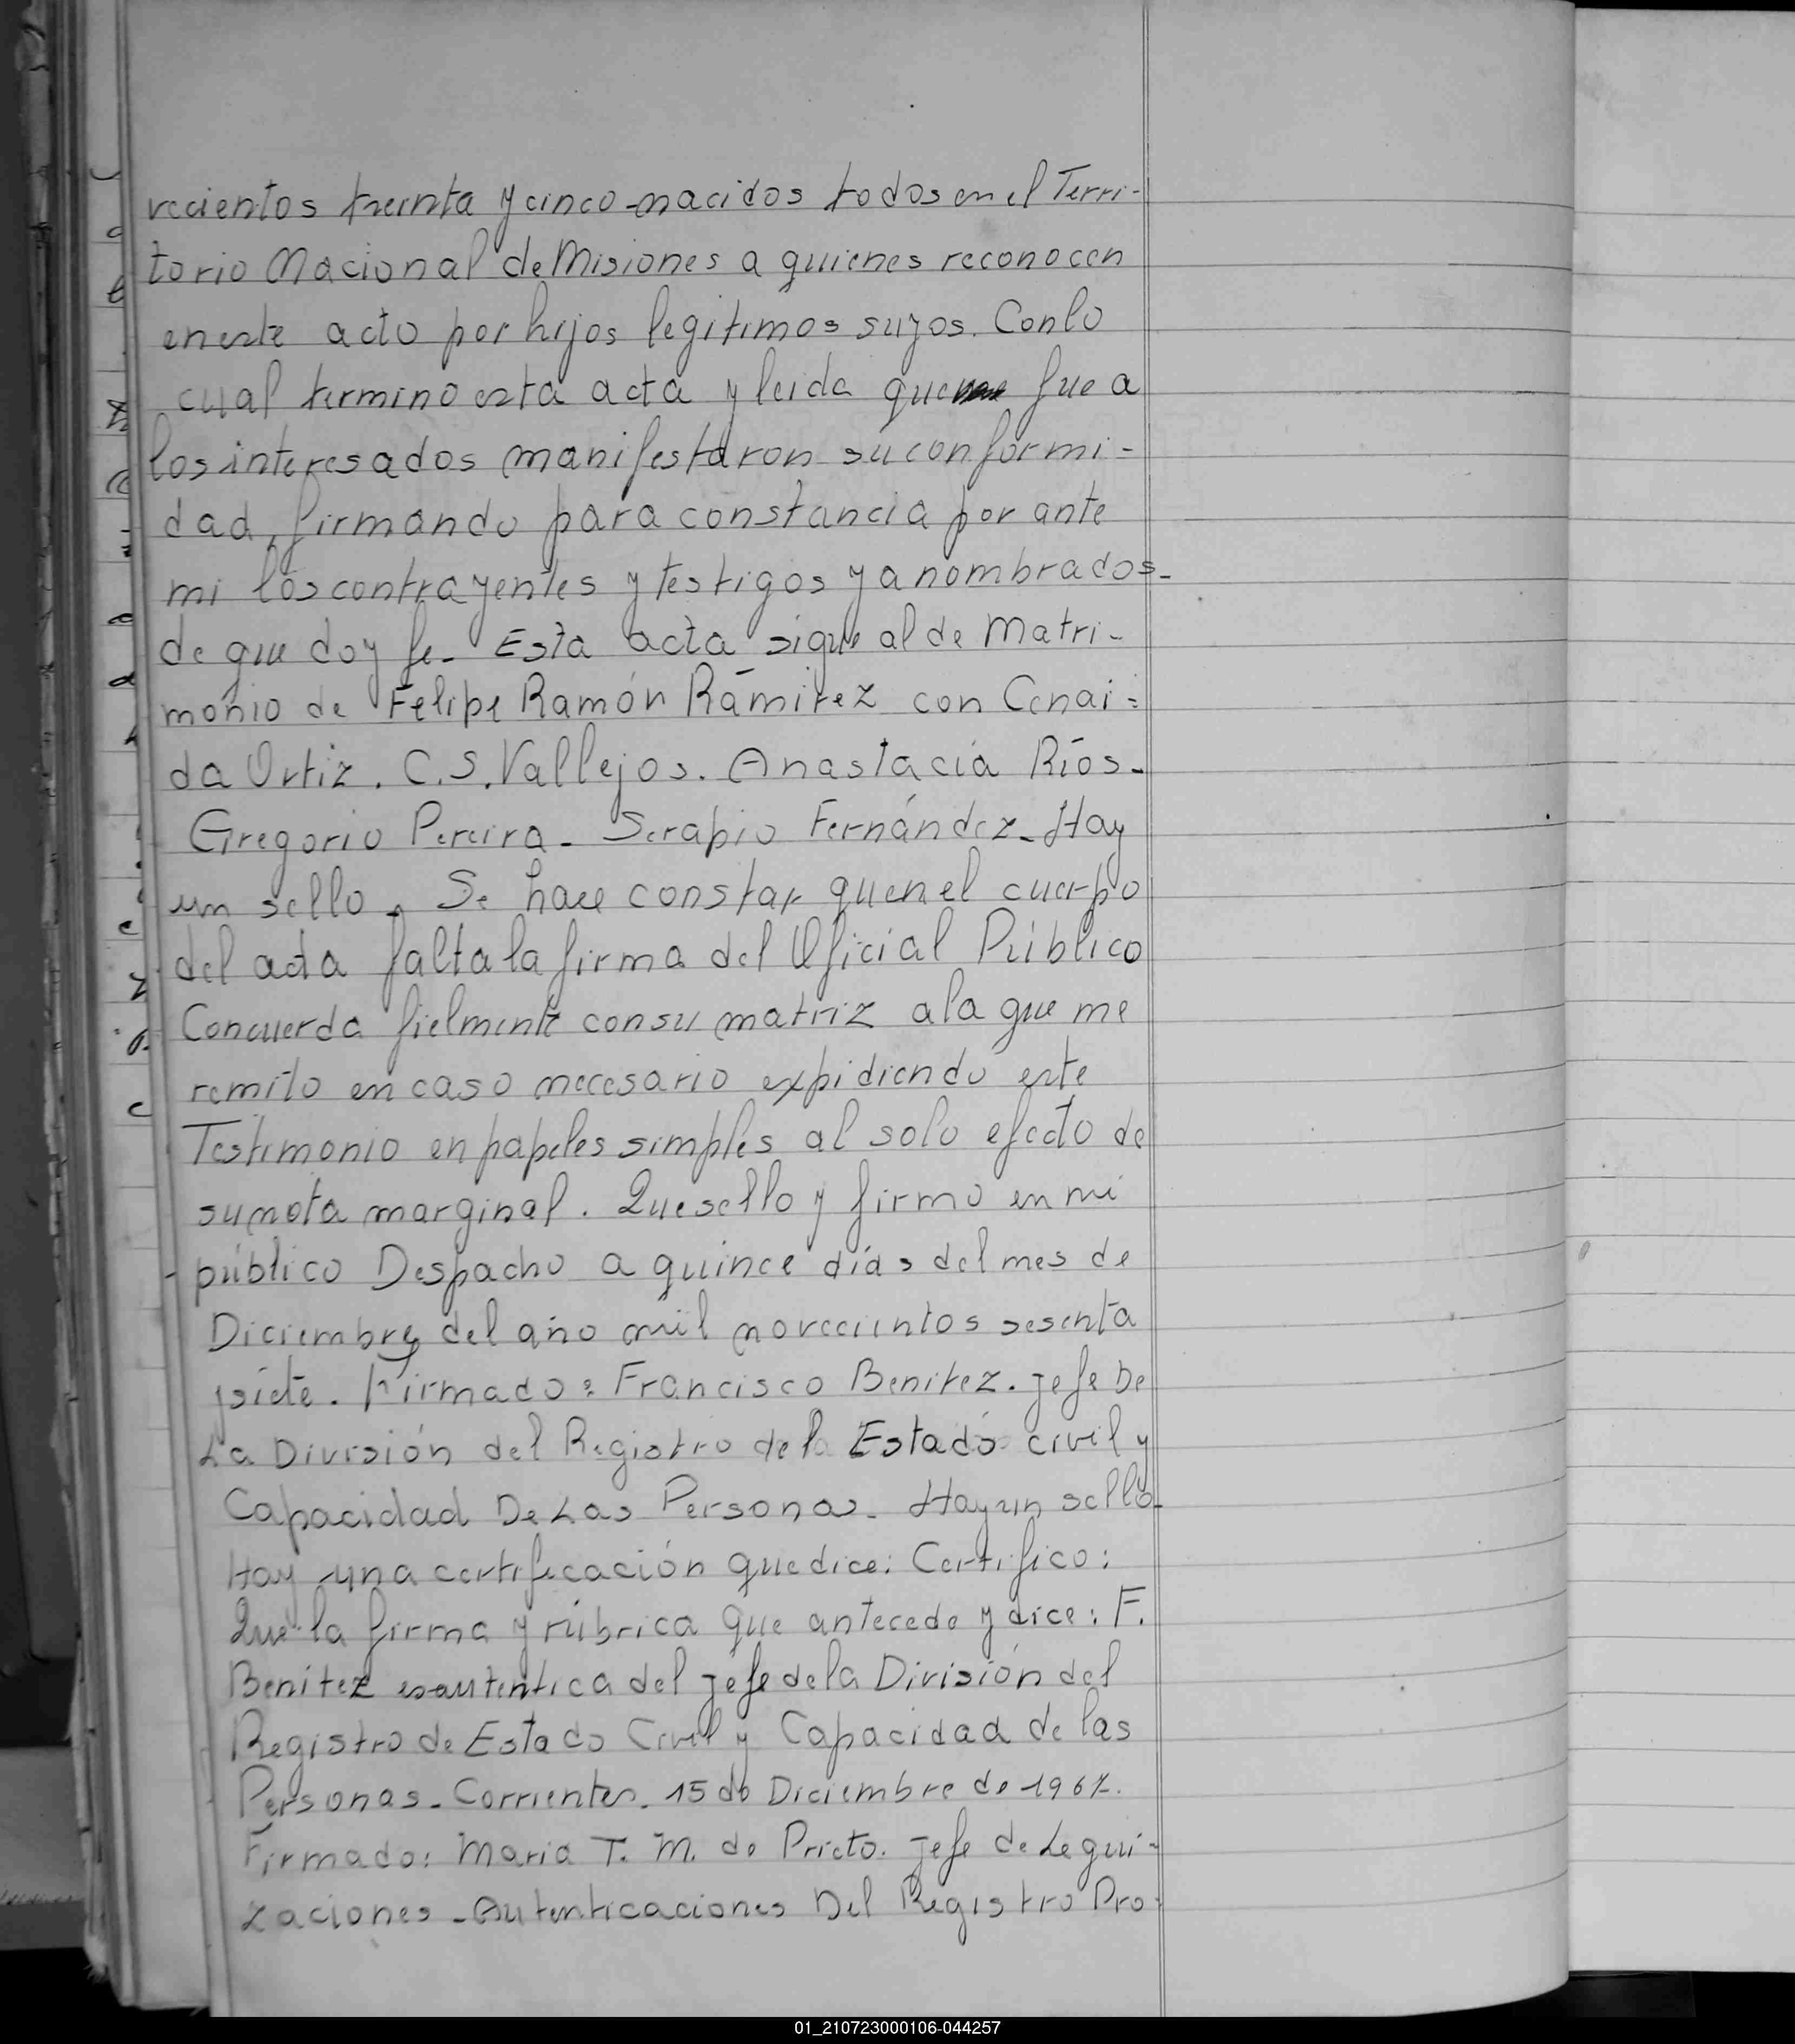 vecientos treinta y cinco-nacidos todos en el Terri-
torio Nacional de Misiones a quienes reconocen
en este acto por hijos legitimos suyos. Con lo
cual termino esta acta y leida que fue a
los interesados manifestaron su conformi-
dad, firmando para constancia por ante
mi los contrayentes y testigos ya nombrados-
de que doy fe- Esta acta sigue al de Matri-
monio de Felipe Ramón Ramirez con Cenai-
da Ortiz. C.S. Vallejos. Anastacia Ríos-
Gregorio Pereira- Serapio Fernández- Hay
un sello. Se hace constar quenel cuerpo
del acta falta la firma del Oficial Público
Concuerda fielmente con su matriz a la que me
remito en caso necesario expidiendo este
Testimonio en papeles simples al solo efecto de
su nota marginal. Que sello y firmo en mi
público Despacho a quince días del mes de
Diciembre del año mil novecientos sesenta
ysiete. Firmado: Francisco Benitez. Jefe De
La División del Registro del Estado civil y
Capacidad De Las Personas- Hay un sello-
Hay una certificación que dice: Certifico:
Que la firma y rúbrica que antecede y dice: F.
Benitez es autentica del Jefe de la División del
Registro de Estado Civil y Capacidad de las
Personas- Corrientes. 15 de Diciembre de 1967.
Firmado: Maria T. M. de Prieto. Jefe de Legui-
zaciones-Autenticaciones Del Registro Pro-
01_210723000106-044257